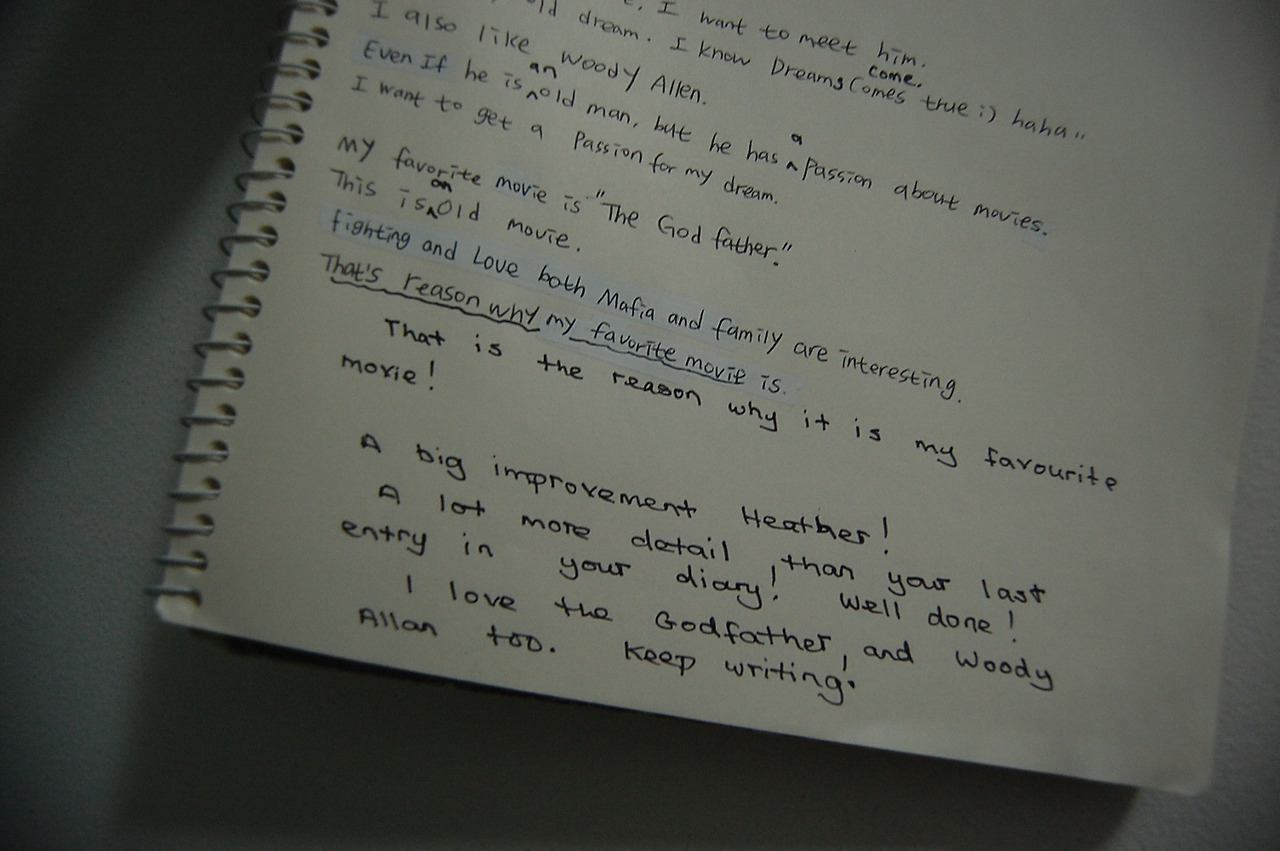 I want to meet him.
old dream. I know Dreams Comes true :) haha"
come.
I also like Woody Allen.
Even If he is old man, but he has passion about movies.
an
a
I want to get a Passion for my dream.
My favorite movie is "The God father."
This is old movie.
an
fighting and Love both Mafia and family are interesting.
That's reason why my favorite movie is.
That is the reason why it is my favourite
movie!
A big improvement Heather!
A lot more detail than your last
entry in your diary! Well done!
I love the Godfather, and Woody
Allan too. Keep writing!